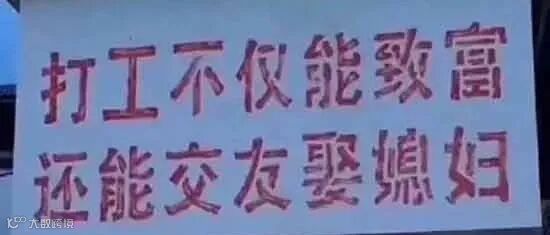 打工不仅能致富
还能交友娶媳妇
大数跨境